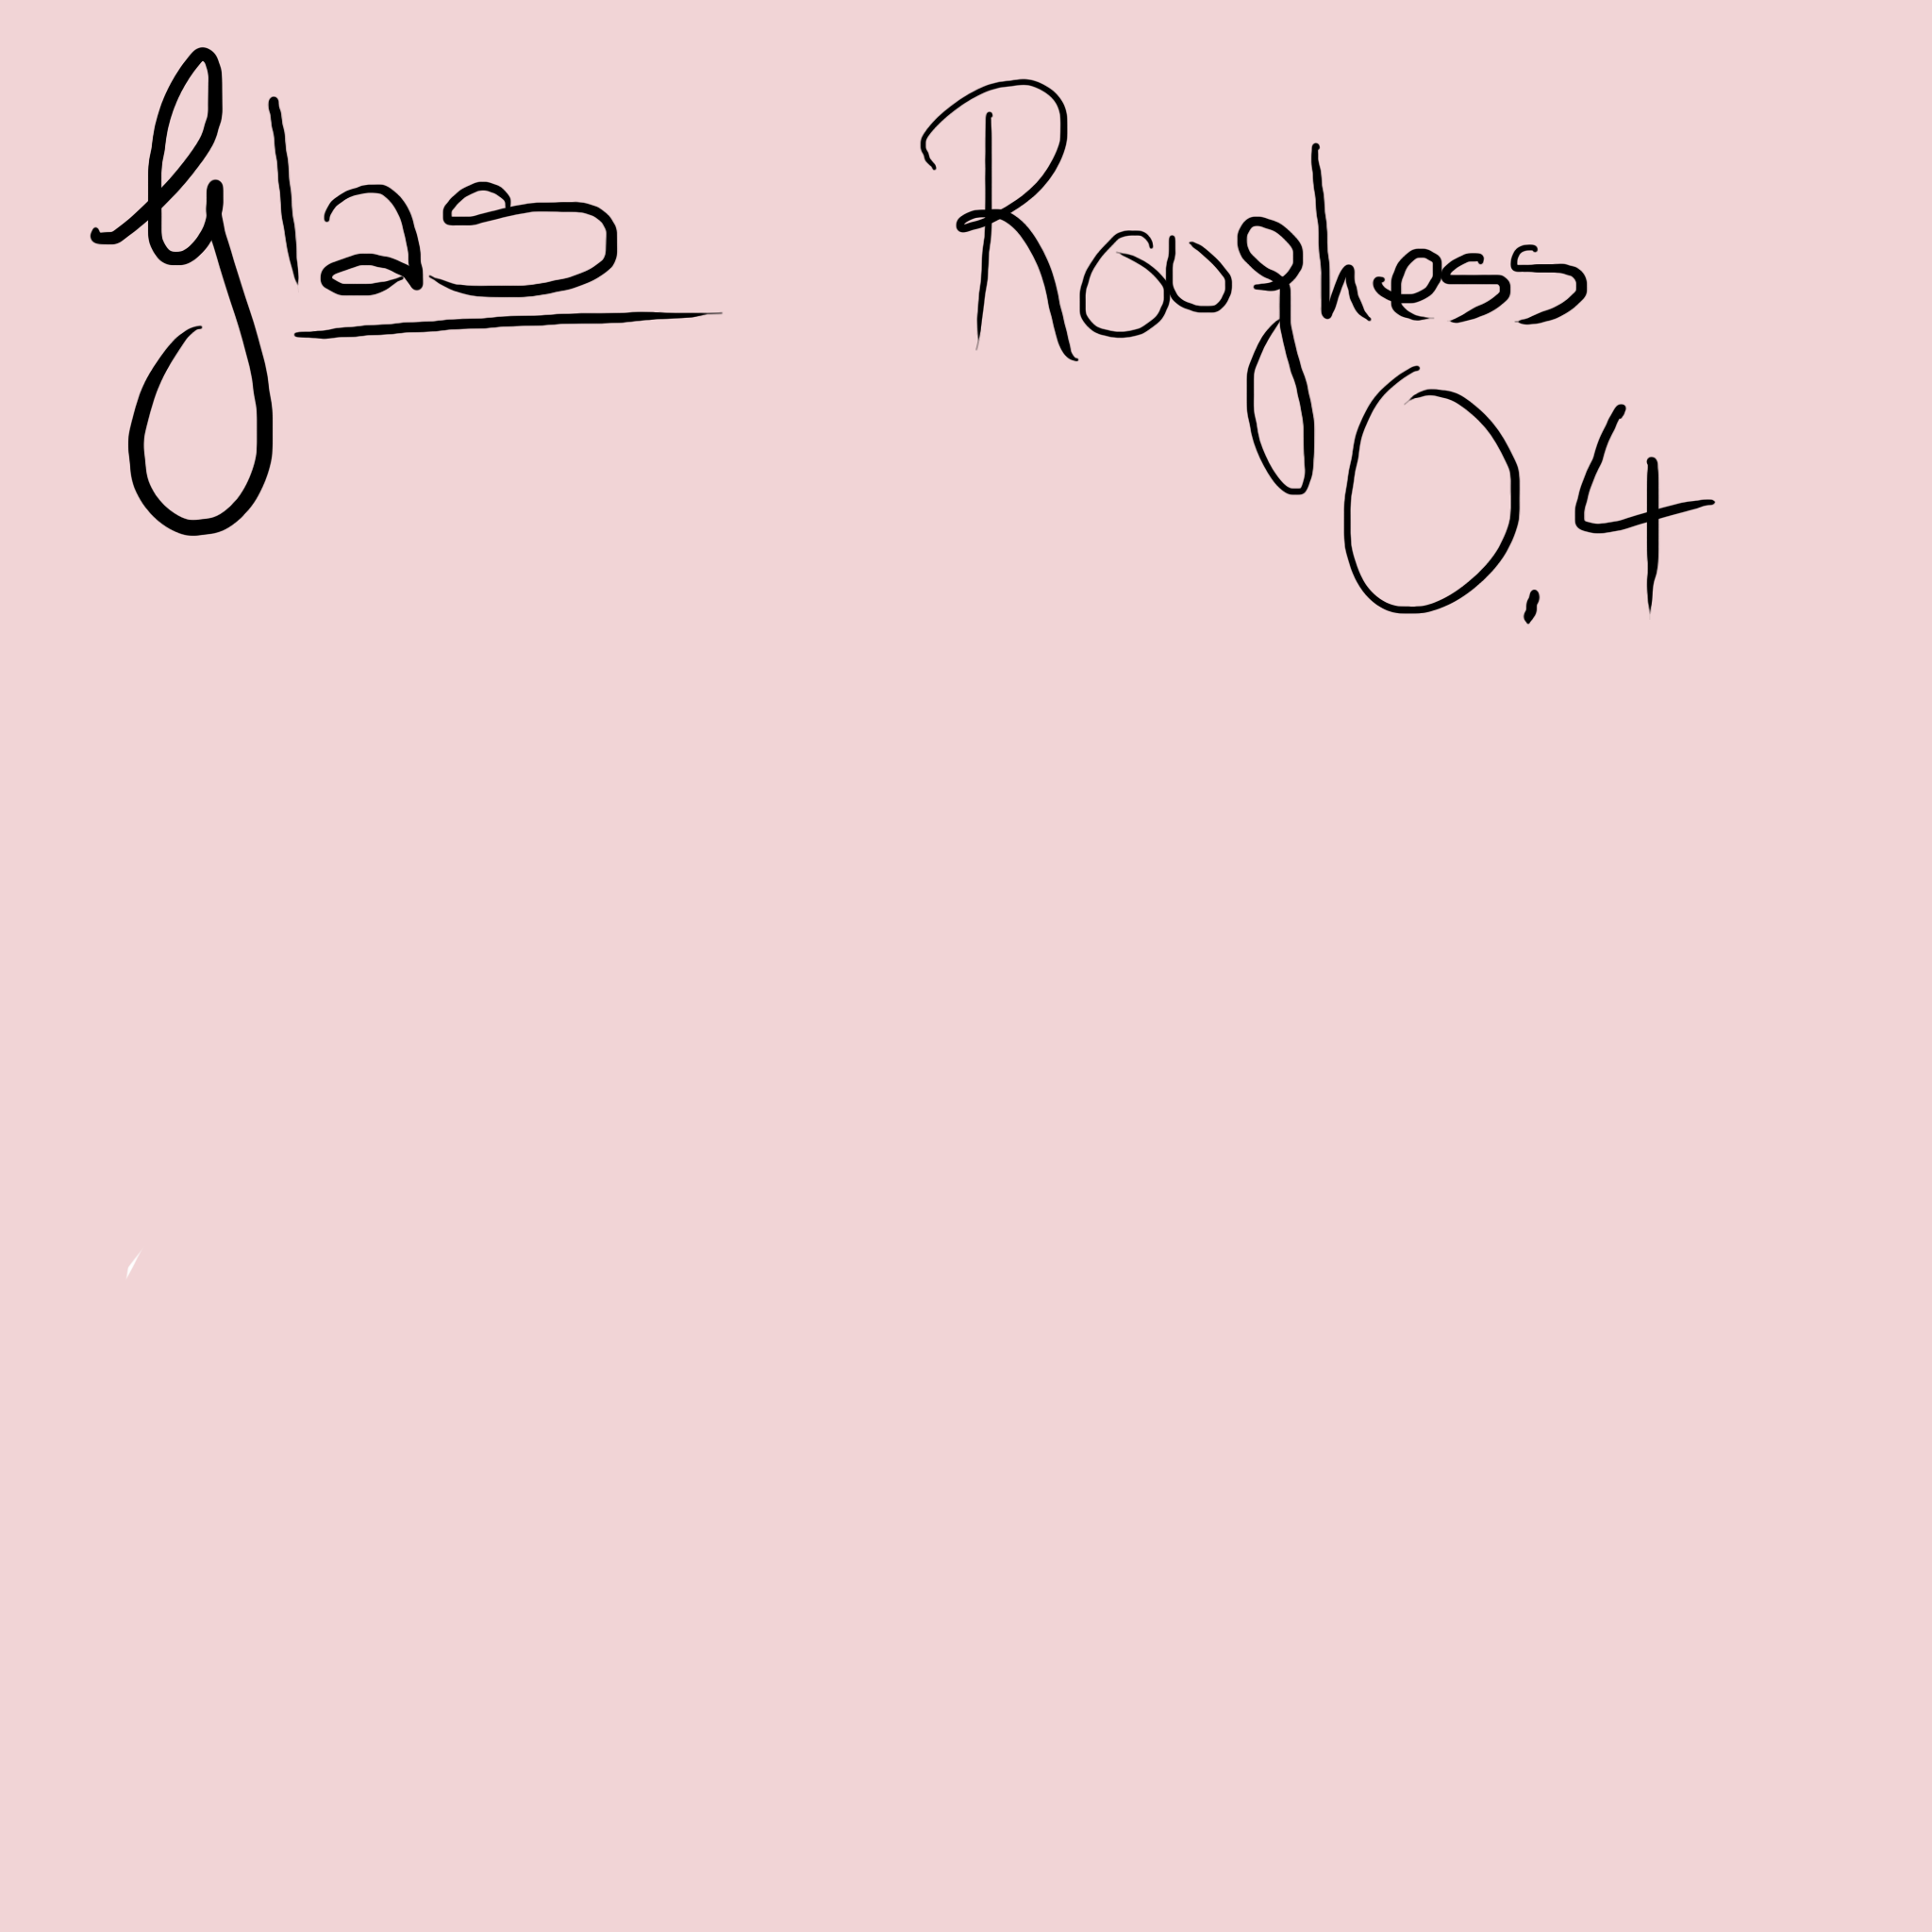 Glas
Roughess
0.4